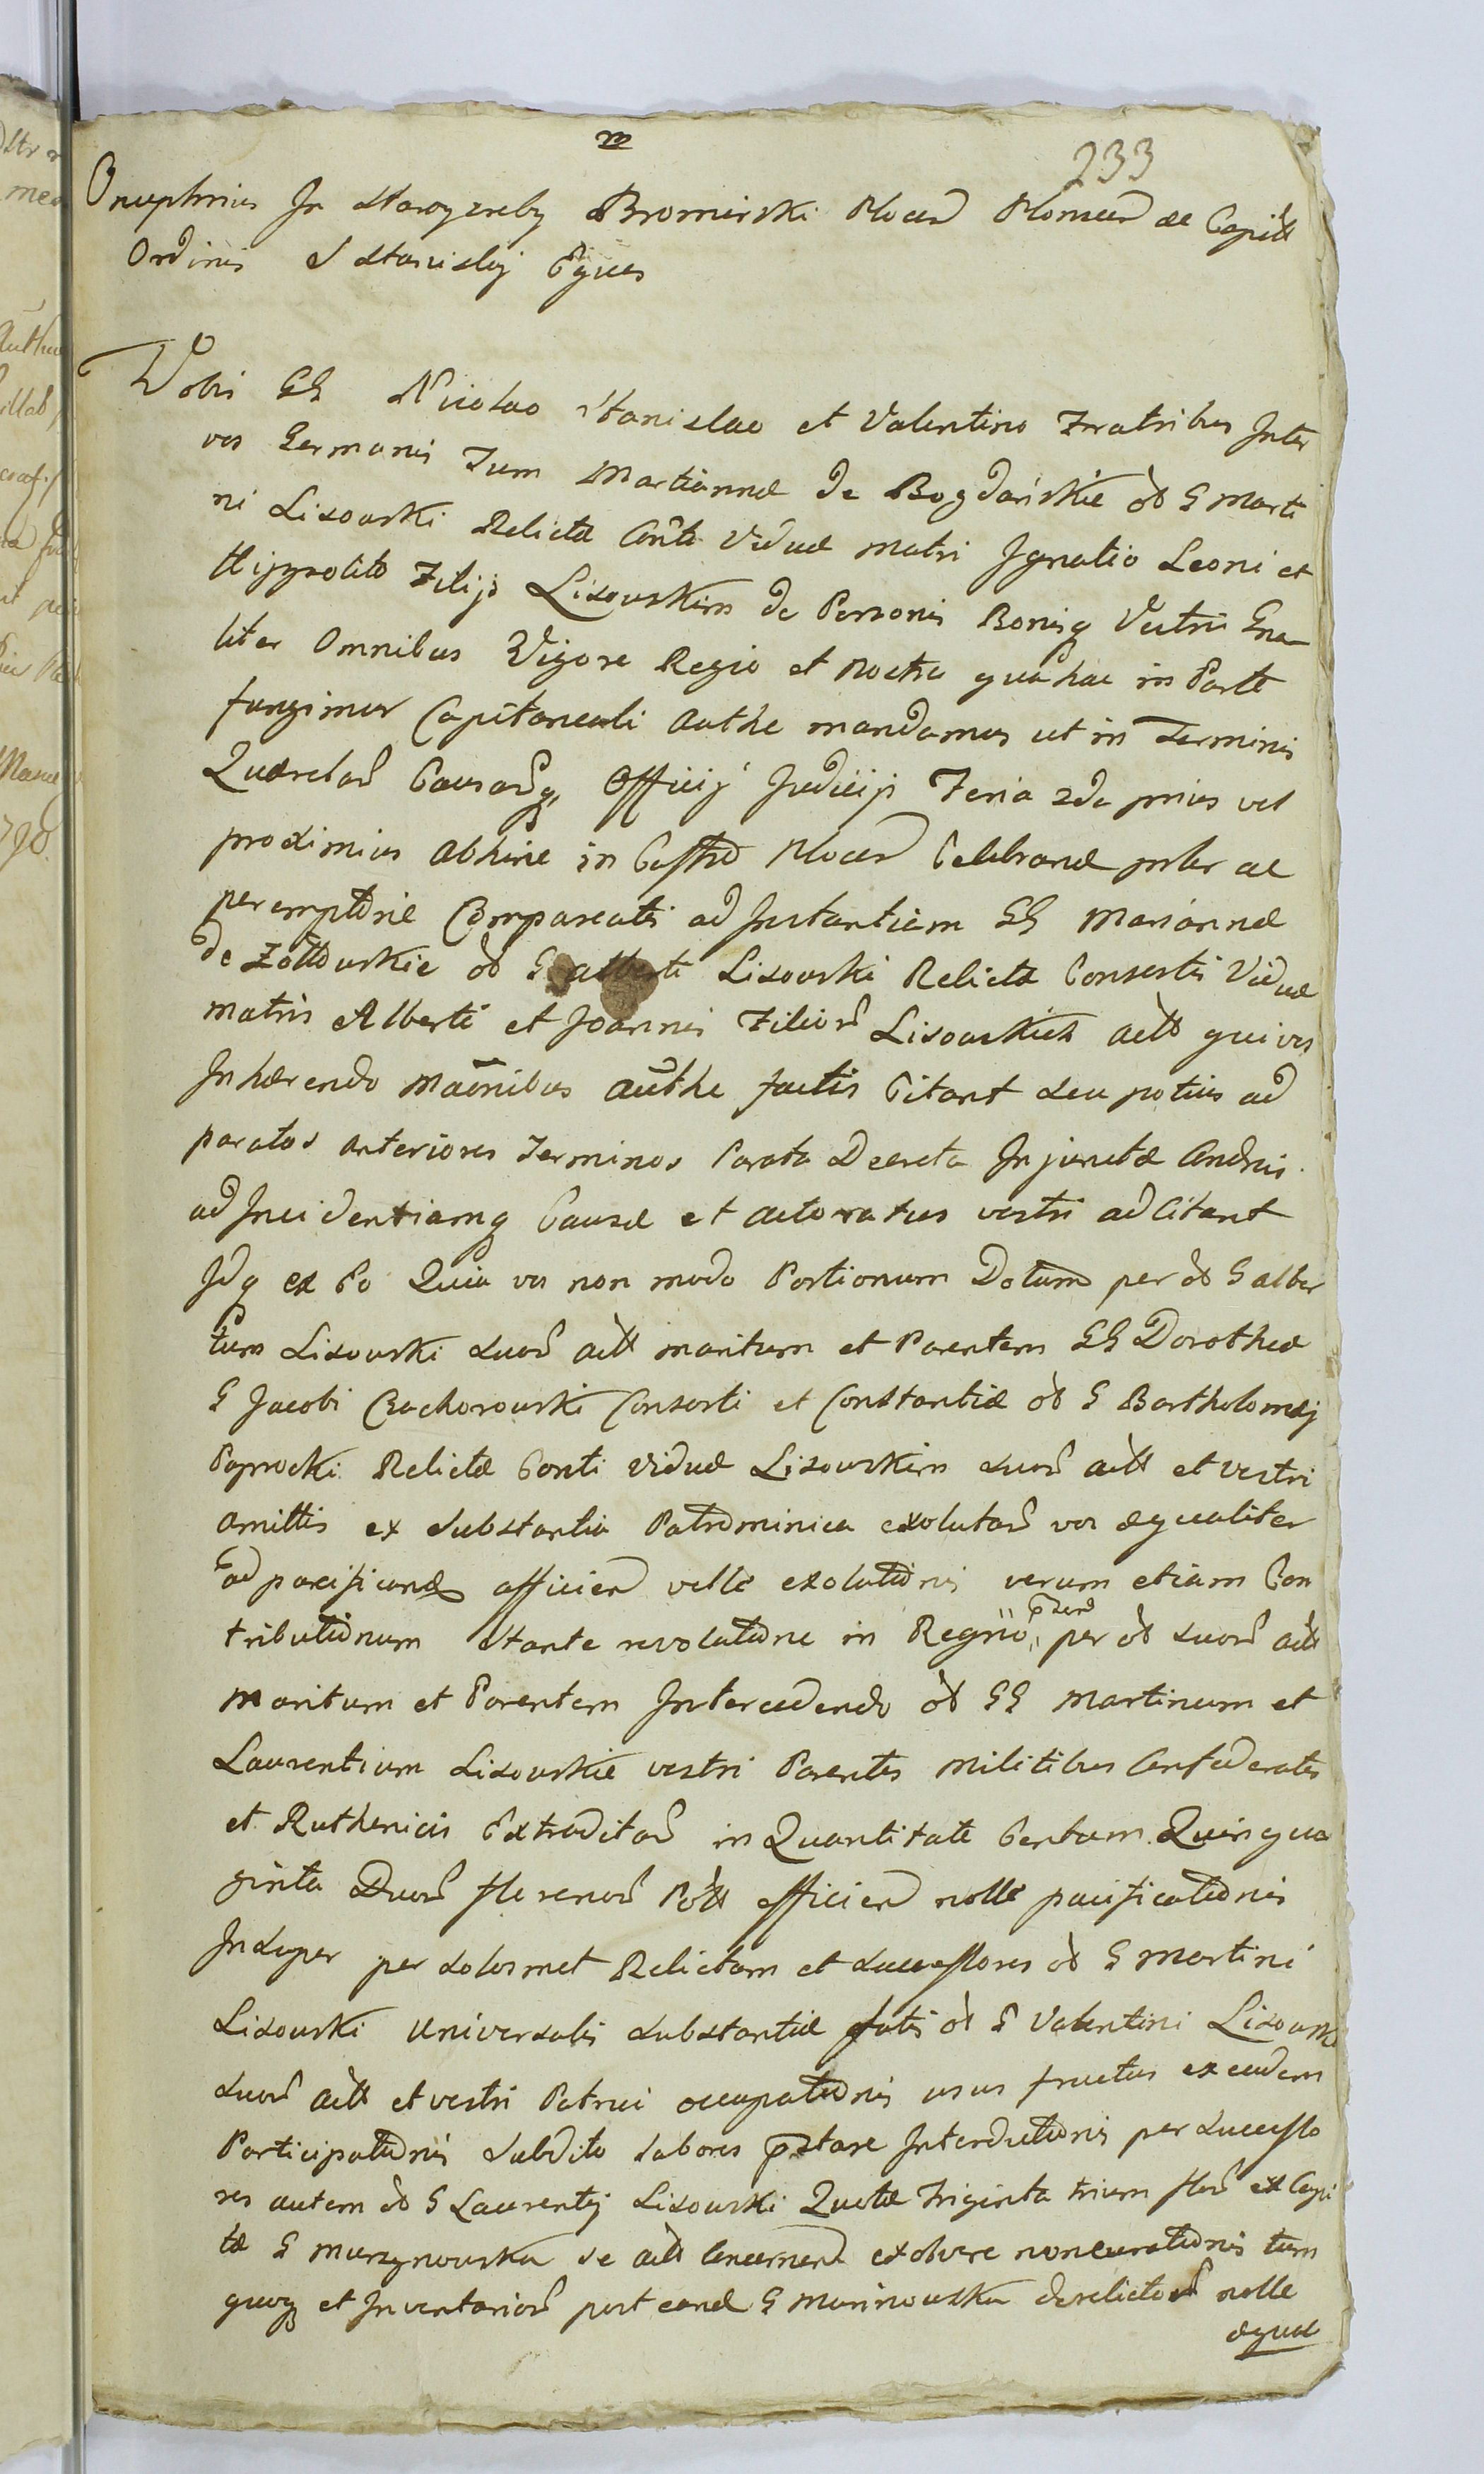 m
233
Onuphrius In Starogreby Bromirski Plocen Plonscen ac Capitt
Ordinis S Stanislaj Eques
Vobis GG Nicolao Stanislao et Valentino Fratribus Inter
vos Germanis Tum Martiannæ de Bogdańskie ođ G Marti
ni Lisowski Relictæ Conti Viduæ Matri Ignatio Leoni et
Hippolito Filijs Lisowskim de Personis Bonisq Vestris Gna
liter Omnibus Vigore Regio et Nostra qua hac in Parte
fungimur Capitaneali Authe mandamus ut in Terminis
Querelar Causarq Officij Judicij Feria 2da prius vel
proximius abhinc in Castro Plocen Celebrand prlr ac
peremptorie Compareatis ad Instantiam GG Mariannæ
de Zółtowskie ođ G Alberti Lisowski Relictæ Consortis Viduæ
Matris Alberti et Joannis Filior Lisowskich actt qui vos
Inhærendo Mãonibus Authe factis Citant seu potius ad
paratos anteriores Terminos Parata Decreta Injunctæ Condnis
ad Incidentiamq Causæ et actoratus vestri adcitant
Idq ex Eo Quia vos non modo Portionum Dotum per ođ G Alber
tum Lisowski suor actt maritum et Parentem GG Dorotheæ
G Jacobi Czachorowski Consorti et Constantiæ ođ G Bartholomæj
Paprocki Relictæ Conti Viduæ Lisowskim suor actt et vestri
amittis ex Substantia Patrimonica exolutar vos æqualiter
ad pacificand afficien velle exolutionis verum etiam Con
tributionum Stante revolutione in Regno przed per ođ suor actt
Maritum et Parentem Intercedendo ođ GG Martinum et
Laurentium Lisowskie vestri Parentes Militibus Confederatis
et Ruthenicis Extraditar in Quantitate Centum Quinqua
ginta Duor florenor Pott efficien nolle pacificationis
Insuper per solosmet Relictam et Successores ođ G Martini
Lisowski universalis substantiæ fatis ođ G Valentini Lisowski
suor actt et vestri Patrui occupationis usus fructus ex eadem
Participationis Subdito labores præstare Interdictionis per Successo
res autem ođ G Laurentij Lisowski Quotæ Triginta trium flor ex Capi
te G Murzynowska se actt Concernen exolvere noncurationis tum
quoq et Inventarior post eand G Murinowska derelictor nolle
æqual